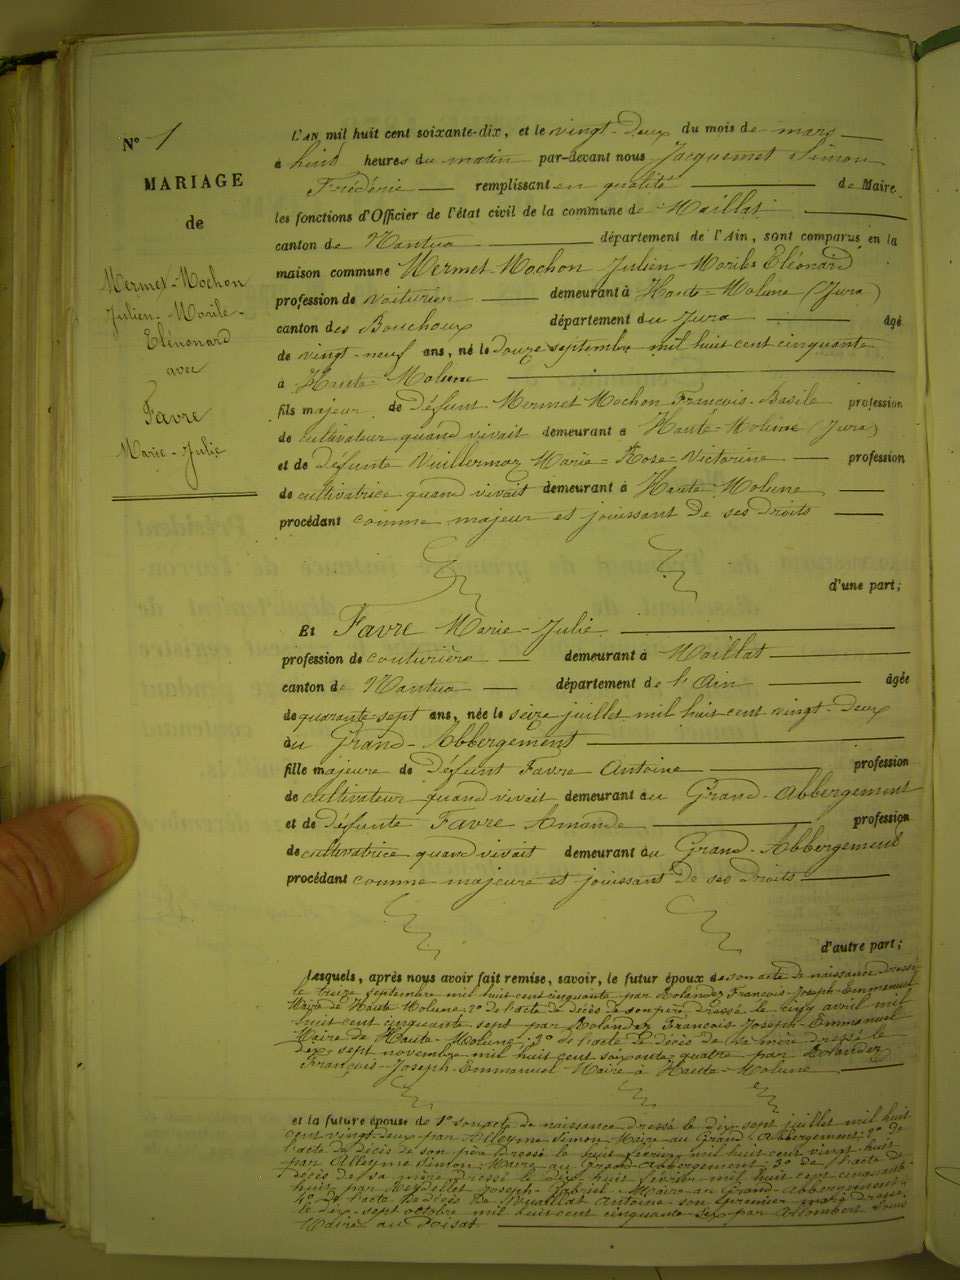 N° 1
MARIAGE
de
Mermet-Mochon
Julien-Marile-
Elénonard
avec
Favre
Marie-Julie
L'AN mil huit cent soixante-dix, et le vingt-deux du mois de mars
à huit heures du matin par-devant nous Jacquemet Simon
Frédéric remplissant en qualité de Maire
les fonctions d'Officier de l'état civil de la commune de Maillat
canton de Nantua département de l'Ain, sont comparus en la
maison commune Mermet-Mochon Julien-Marile Eléonard
profession de voiturier demeurant à Haute-Molune (Jura)
canton des Bouchoux département du Jura âgé
de vingt-neuf ans, né le douze septembre mil huit cent cinquante
à Haute-Molune
fils majeur de Défunt Mermet Mochon François-Basile profession
de cultivateur quand vivait demeurant à Haute-Molune (Jura)
et de défunte Vuillermoz Marie-Rose-Victorine profession
de cultivatrice quand vivait demeurant à Haute-Molune
procédant comme majeur et jouissant de ses droits
d'une part;
Et Favre Marie-Julie
profession de couturière demeurant à Maillat
canton de Nantua département de l'Ain âgée
de quarante sept ans, née le seize juillet mil huit cent vingt-deux
au Grand-Abbergement
fille majeure de Défunt Favre Antoine profession
de cultivateur quand vivait demeurant au Grand-Abbergement
et de défunte Favre Amande profession
de cultivatrice quand vivait demeurant au Grand-Abbergement
procédant comme majeure et jouissant de ses droits
d'autre part;
Lesquels, après nous avoir fait remise, savoir, le futur époux de son acte de naissance dressé
le treize septembre mil huit cent cinquante par Rolandez François-Joseph-Emmanuel
Maire de Haute Molune 2° de l'acte de décès de son père dressé le cinq avril mil
huit cent cinquante sept par Rolandez François-Joseph-Emmanuel
Maire de Haute-Molune; 3° de l'acte de décès de sa mère dressé le
dix sept novembre mil huit cent soixante quatre par Rolandez
François-Joseph-Emmanuel Maire à Haute-Molune
et la future épouse de 1° son acte de naissance dressé le dix sept juillet mil huit
cent vingt deux par Alleyme Simon Maire au Grand Abbergement; 2° de
l'acte de décès de son père dressé le huit février mil huit cent vingt huit
par Alleyme Simon Maire au Grand-Abbergement 3° de l'acte de
décès de sa mère dressé le dix huit février mil huit cent cinquante
huit par Joseph-Gabriel Maire au Grand-Abbergement
4° de l'acte de décès de Antoine son premier mari dressé
le dix-sept octobre mil huit cent cinquante six par Allombert
Maire au Poizat